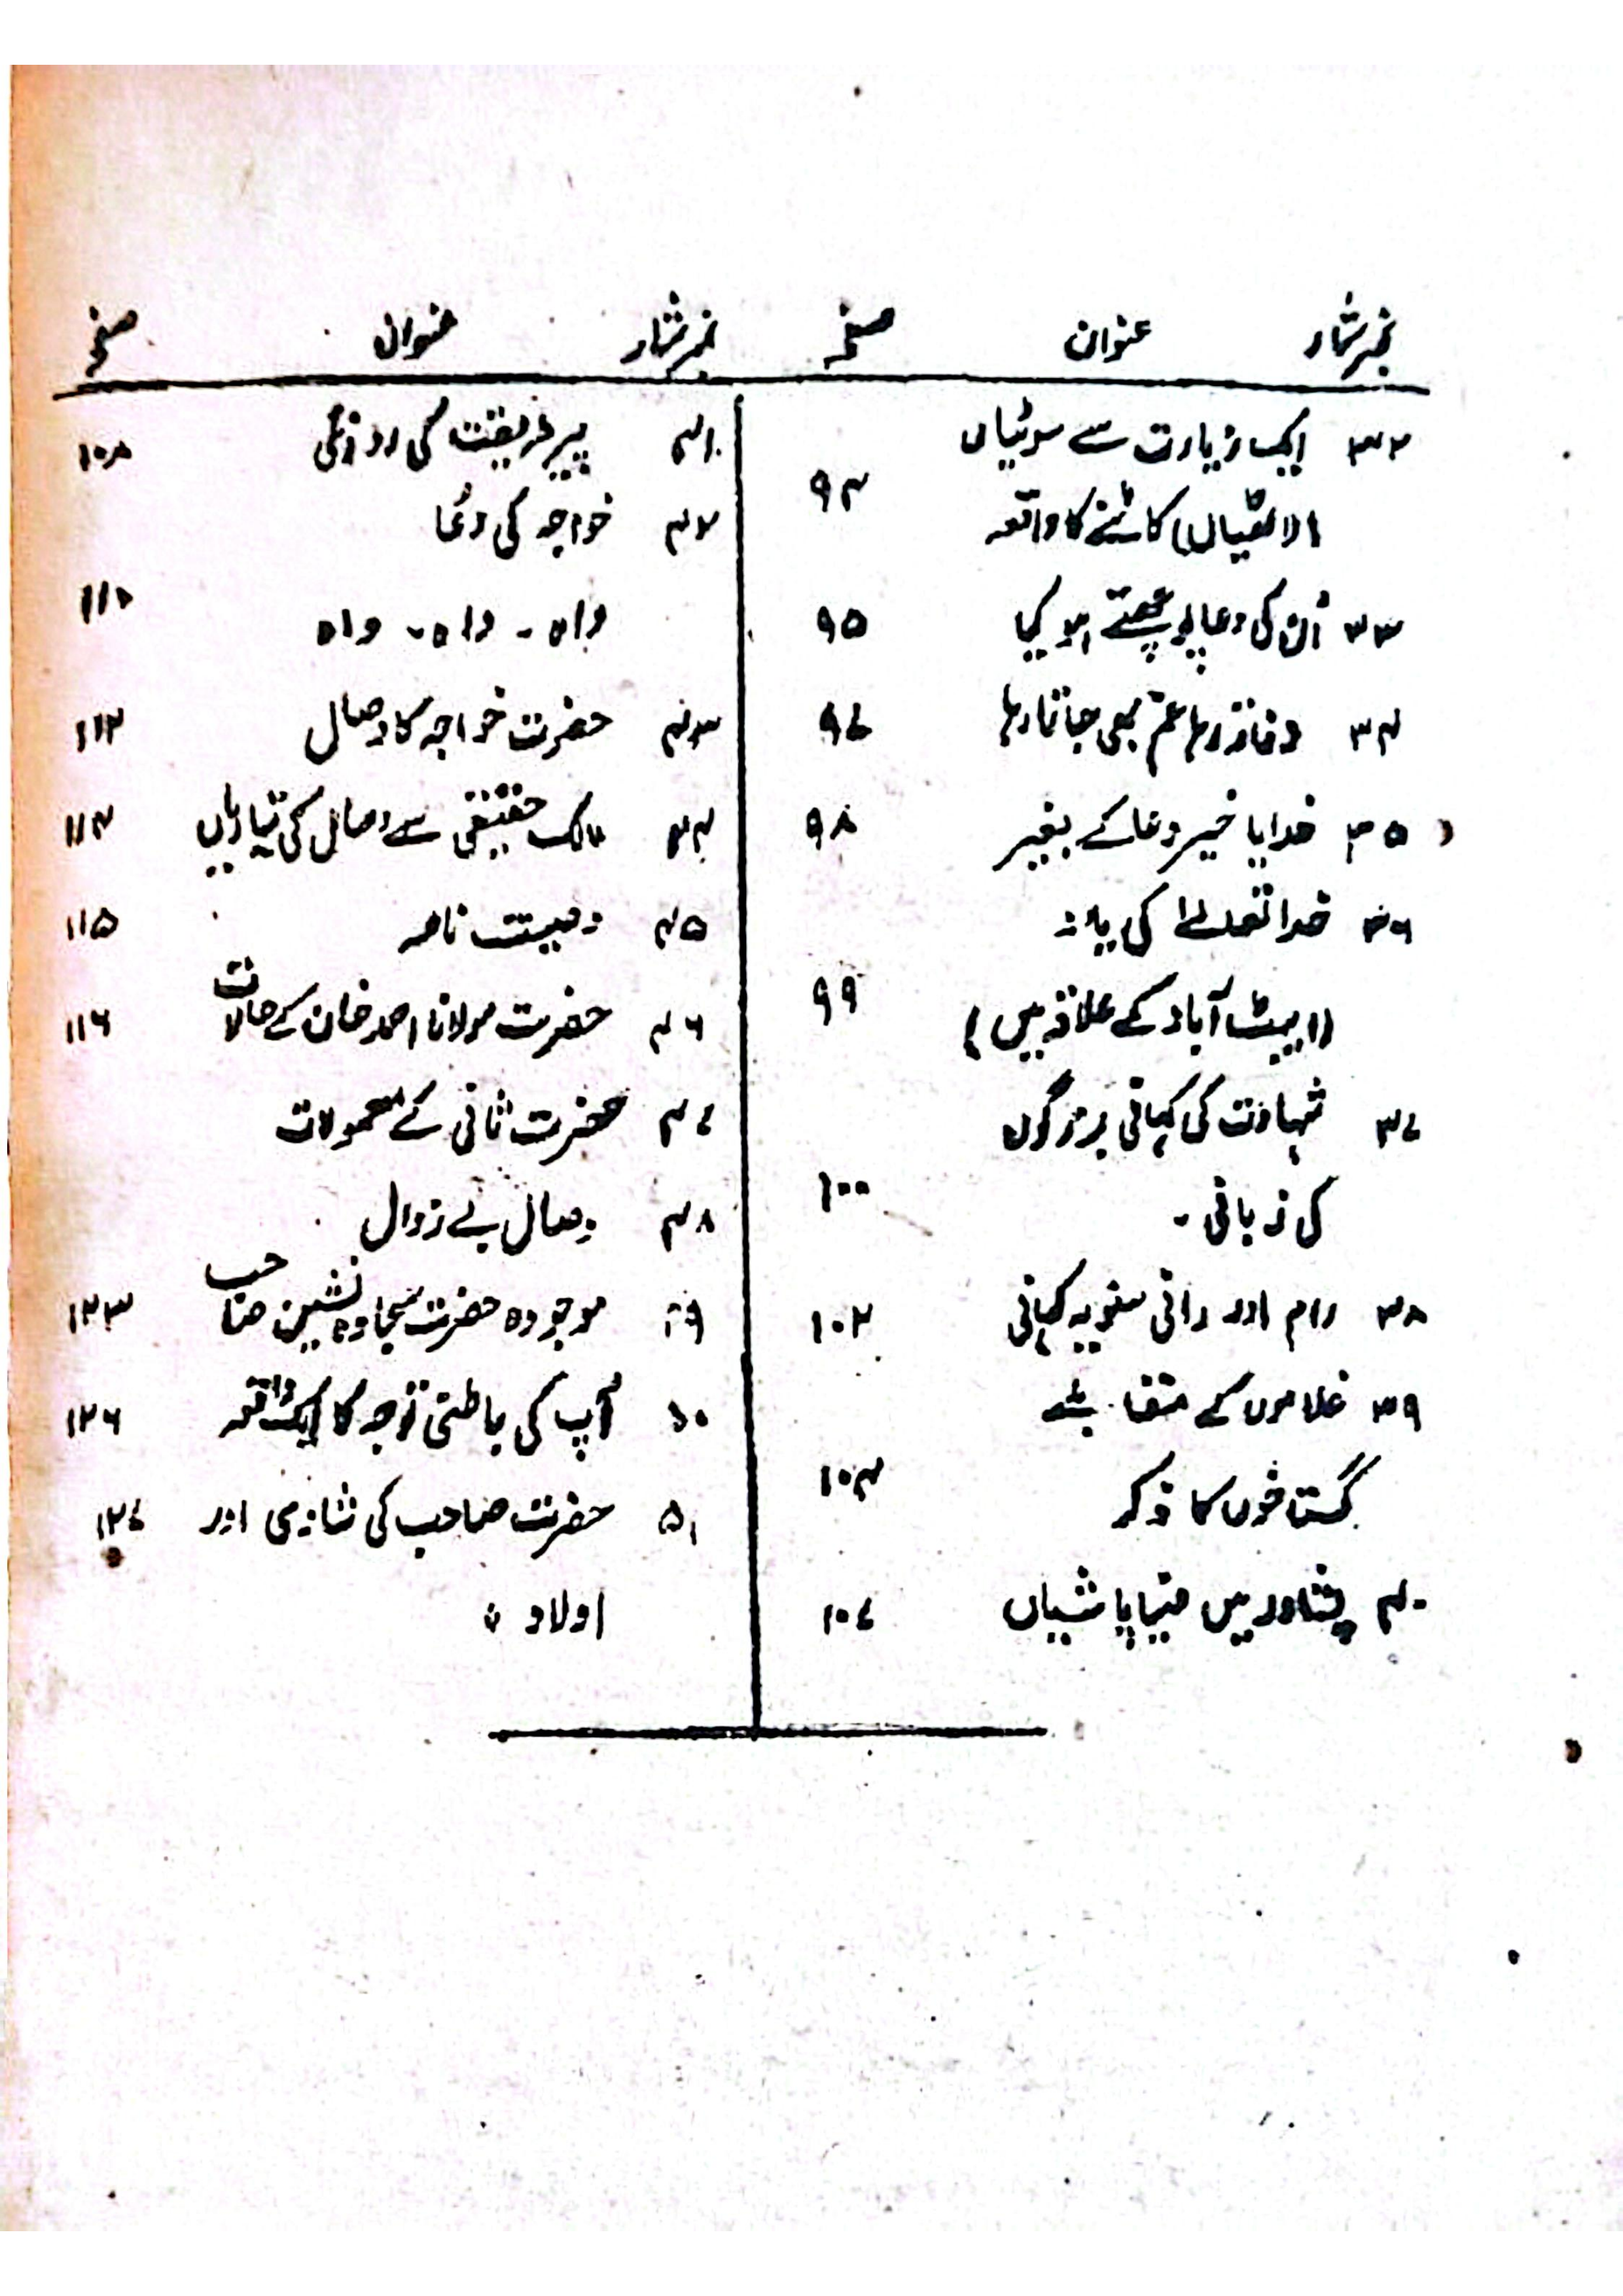 نمبر شمار عنوان صفحہ
۳۲ ایک زیارت سے سوٹیاں
(لاٹھیاں) کاٹنے کا واقعہ ۹۴
۳۳ اُن کی دعا پوچھتے ہو کیا ۹۵
۳۴ نہ رہا غم بھی جاتا رہا ۹۷
۳۵ خدایا خیر دعا کے بغیر ۹۸
۳۶ خدا تعالےٰ کی یاد
(ایبٹ آباد کے علاقہ میں) ۹۹
۳۷ شہادت کی کہانی بزرگوں
کی زبانی۔ ۱۰۰
۳۸ رام اور رانی کہانی ۱۰۲
۳۹ غلاموں کے
گستاخوں کا ذکر ۱۰۴
۴۰ پشاور میں ضیاپاشیاں ۱۰۷
نمبر شمار عنوان صفحہ
۴۱ پیر طریقت کی ۱۰۸
۴۲ خواجہ کی دُعا
واہ۔ واہ۔ واہ ۱۱۰
۴۳ حضرت خواجہ کا وصال ۱۱۲
۴۴ مالک حقیقی سے وصال کی تیاریاں ۱۱۴
۴۵ وصیت نامہ ۱۱۵
۴۶ حضرت مولانا احمد خان کے حالات ۱۱۶
۴۷ حضرت ثانی کے معمولات
۴۸ وصال بے زوال
۴۹ موجودہ حضرت سجادہ نشین صاحب ۱۲۳
۵۰ آپ کی باطنی توجہ کا ایک واقعہ ۱۲۶
۵۱ حضرت صاحب کی شادی اور ۱۲۷
اولاد